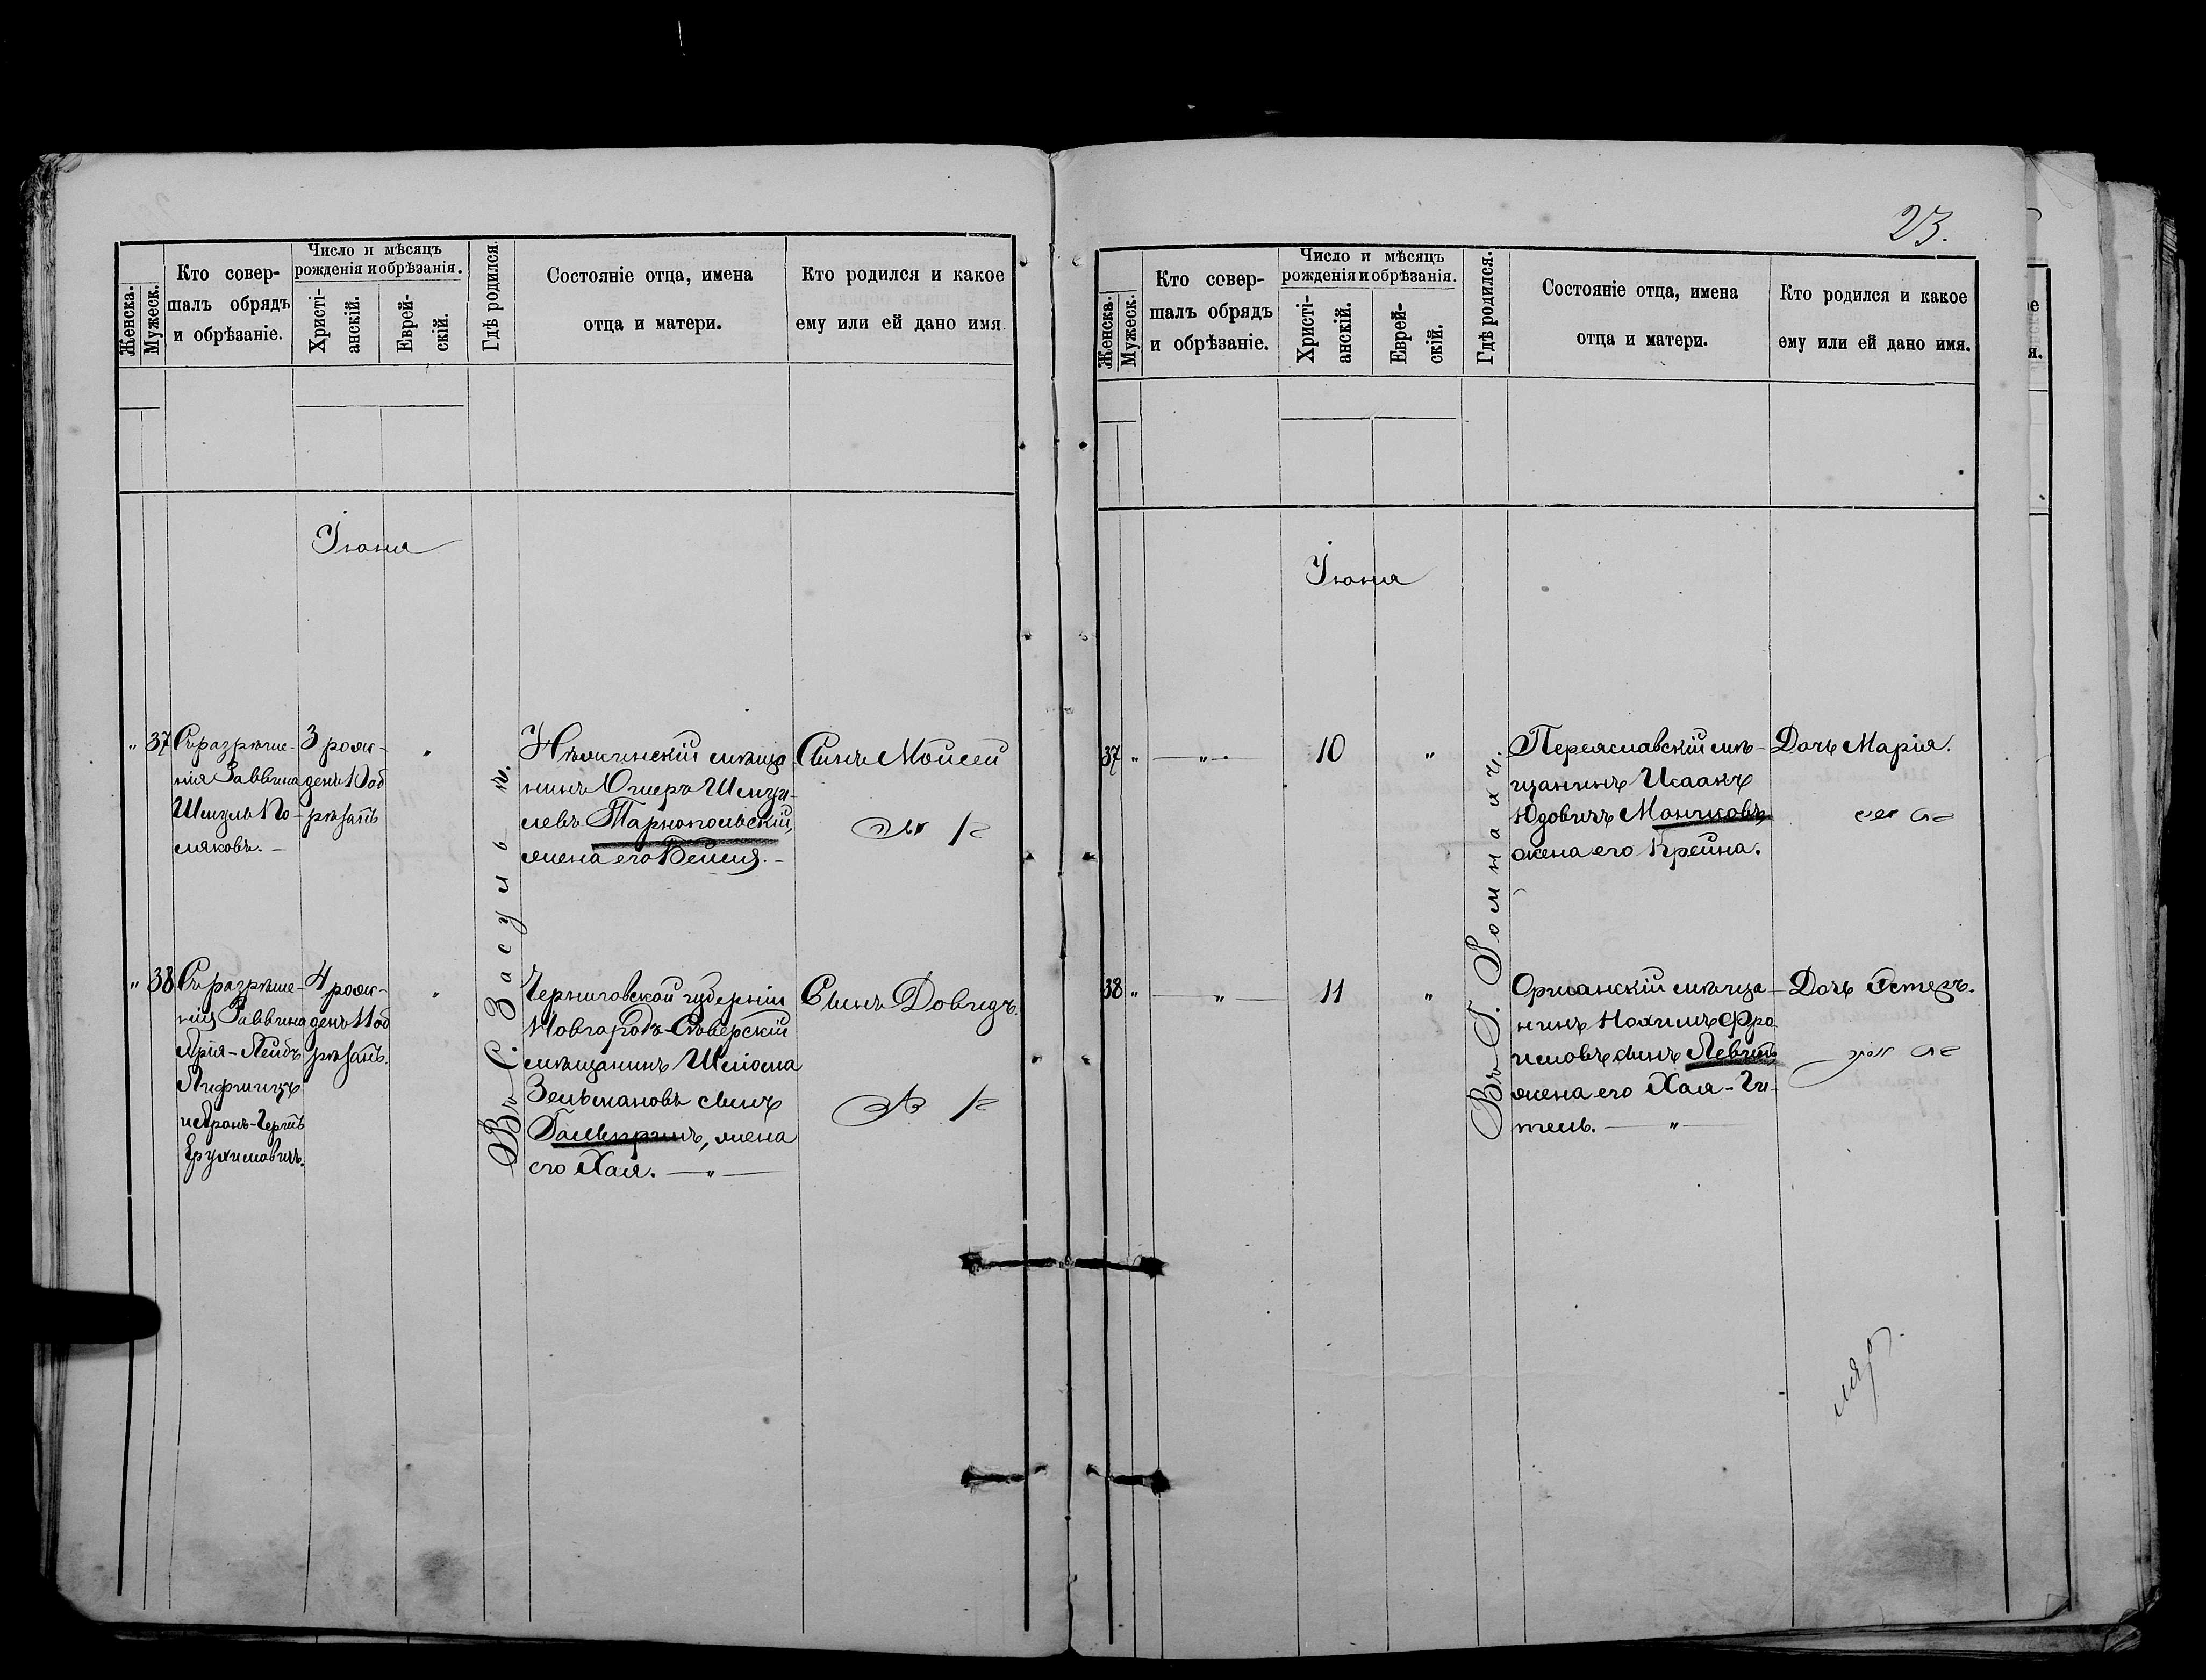 Женска.
Мужеск.
Кто совер-
шалъ обрядъ
и обрѣзаніе.
Число и мѣсяцъ
рожденія и обрѣзанія.
Христі-
анскій.
Еврей-
скій.
Гдѣ родился.
Состояніе отца, имена
отца и матери.
Кто родился и какое
ему или ей дано имя
Іюня
" 37
Съ разрѣше-
нія Раввина
Шмуль По-
ляковъ. —
3 рож-
денъ 10 об
рѣзанъ
"
Въ С. Засулье
Нѣжинскій мѣща
нинъ Ошеръ Шмуй-
левъ Тарнопольскій,
жена его Бейля. —
Сынъ Мойсей
בן משה
" 38
Съ разрѣше-
нія Раввина
Арія-Лейбъ
Лифшицъ
и Аронъ-Гершъ
Ерухимовичъ.
4 рож-
денъ 11 об
рѣзанъ.
"
Черниговской губерніи
Новгородъ-Сѣверскій
мѣщанинъ Шліома
Зельмановъ сынъ
Гальпринъ, жена
его Хая. — " —
Сынъ Довидъ.
בן דוד
23.
Женска.
Мужеск.
Кто совер-
шалъ обрядъ
и обрѣзаніе.
Число и мѣсяцъ
рожденія и обрѣзанія.
Христі-
анскій.
Еврей-
скій.
Гдѣ родился.
Состояніе отца, имена
отца и матери.
Кто родился и какое
ему или ей дано имя.
Іюня
37 "
— " —
10
"
Въ Г. Ромнахъ.
Переяславскій мѣ-
щанинъ Исаакъ
Юдовичъ Манчковъ,
жена его Крейна.
Дочь Марія.
בת מרים
38 "
— " —
11
"
Оршанскій мѣща-
нинъ Нохимъ Фро
имовъ сынъ Левитъ
жена его Хая-Ги-
тель. — " —
Дочь Эстеръ.
בת אסתר